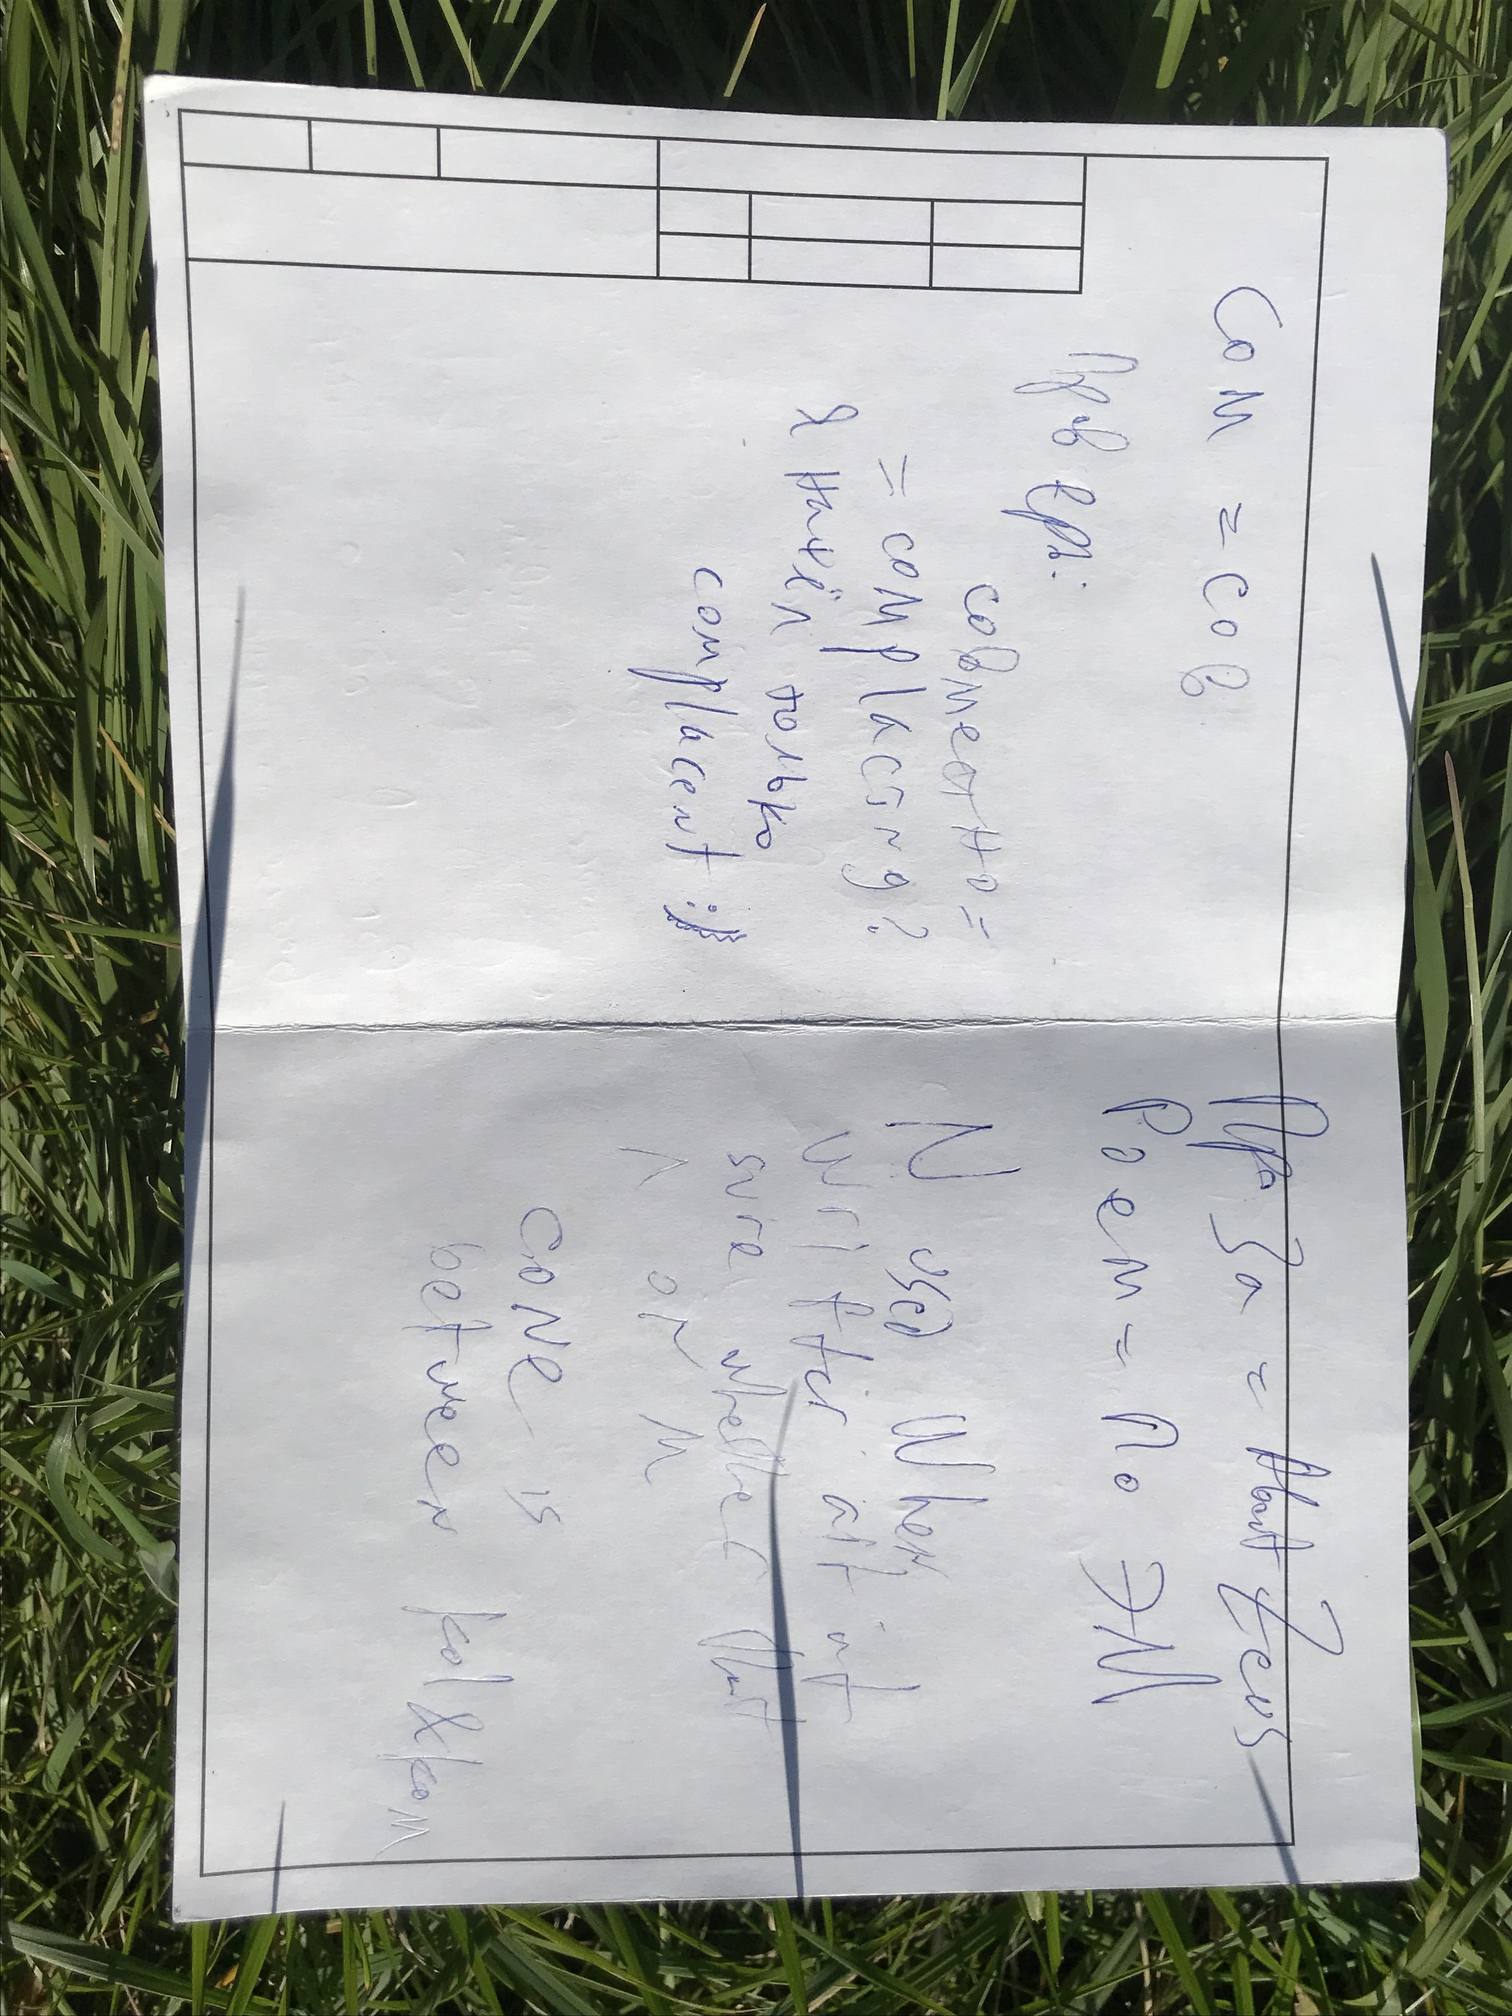 com = сов
Проверь:
совместно =
= complacing?
Я начёл только
complacent :)
Проза = About Zeus
Poem = По ЭМ
N used When
writter ait nt
sure whether that
Λ or M
cone is
between kol & kom